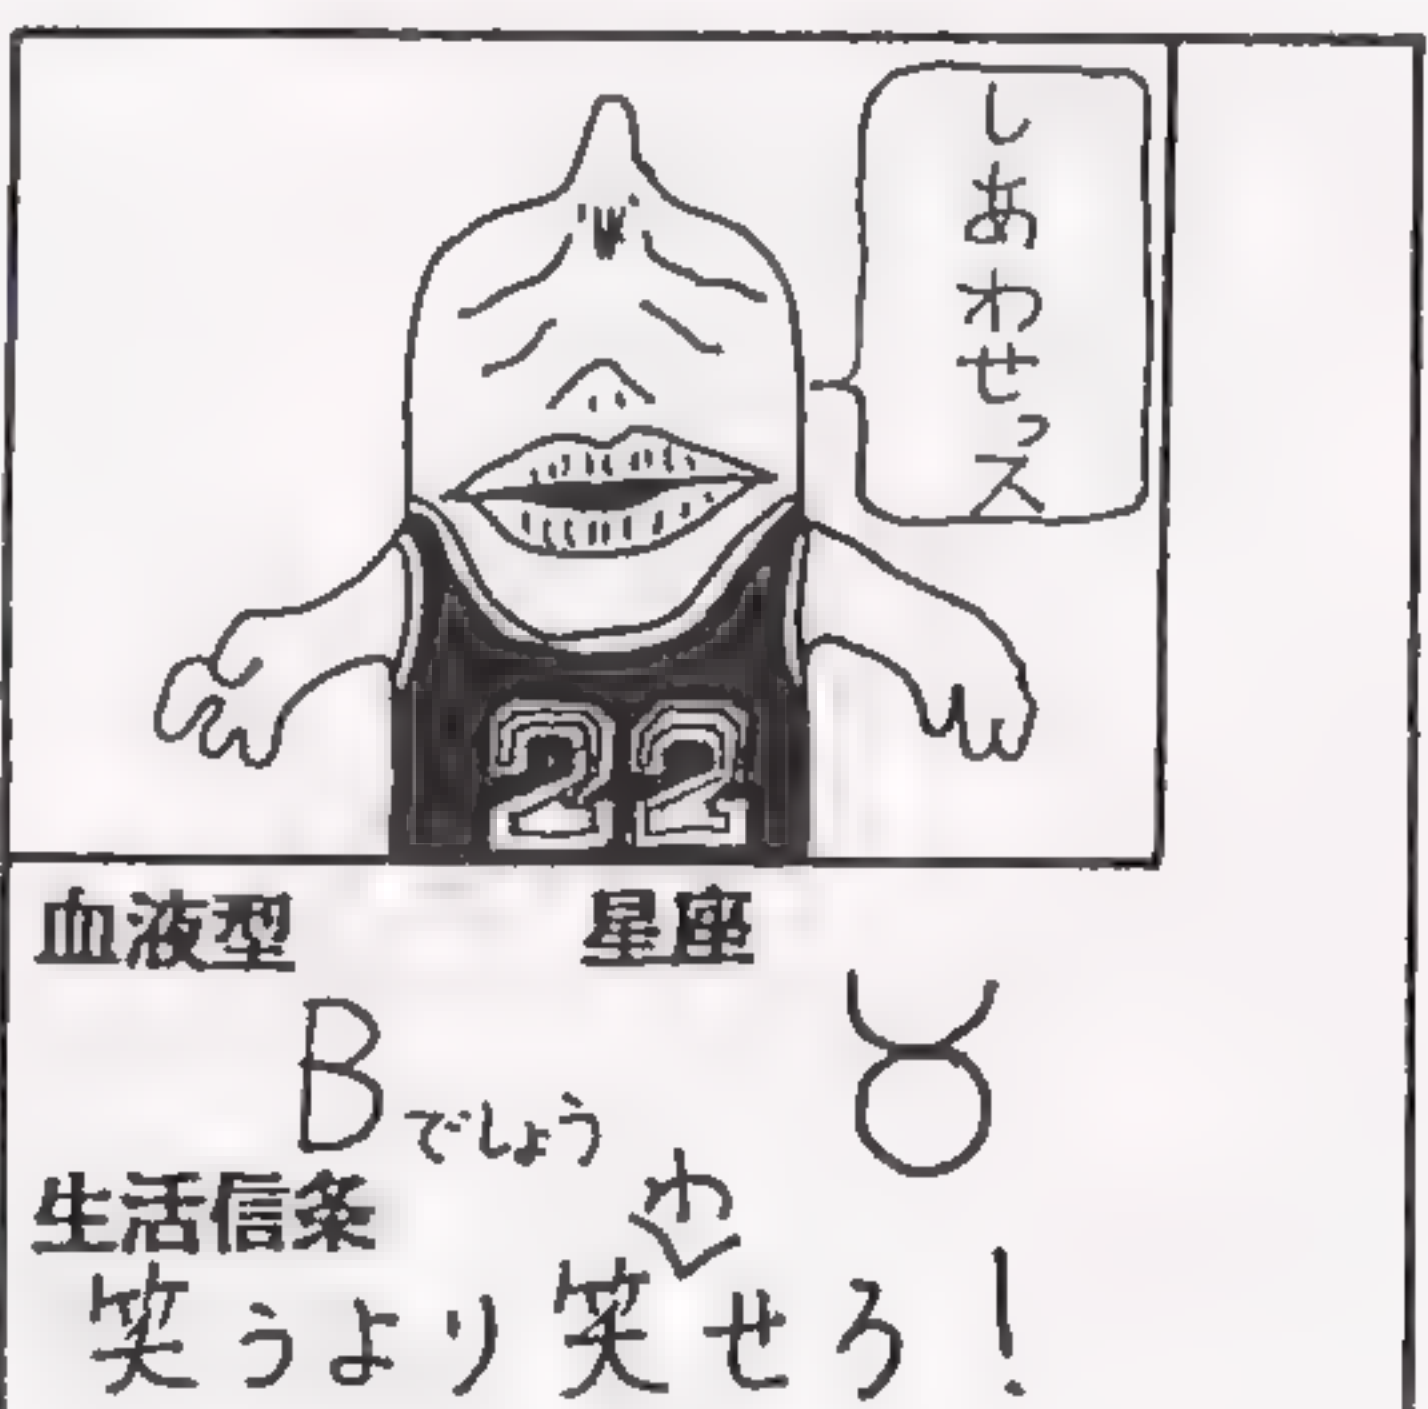 しあわせっス
22
血液型 星座
Bでしょう ♉
生活信条
笑うより笑わせろ!